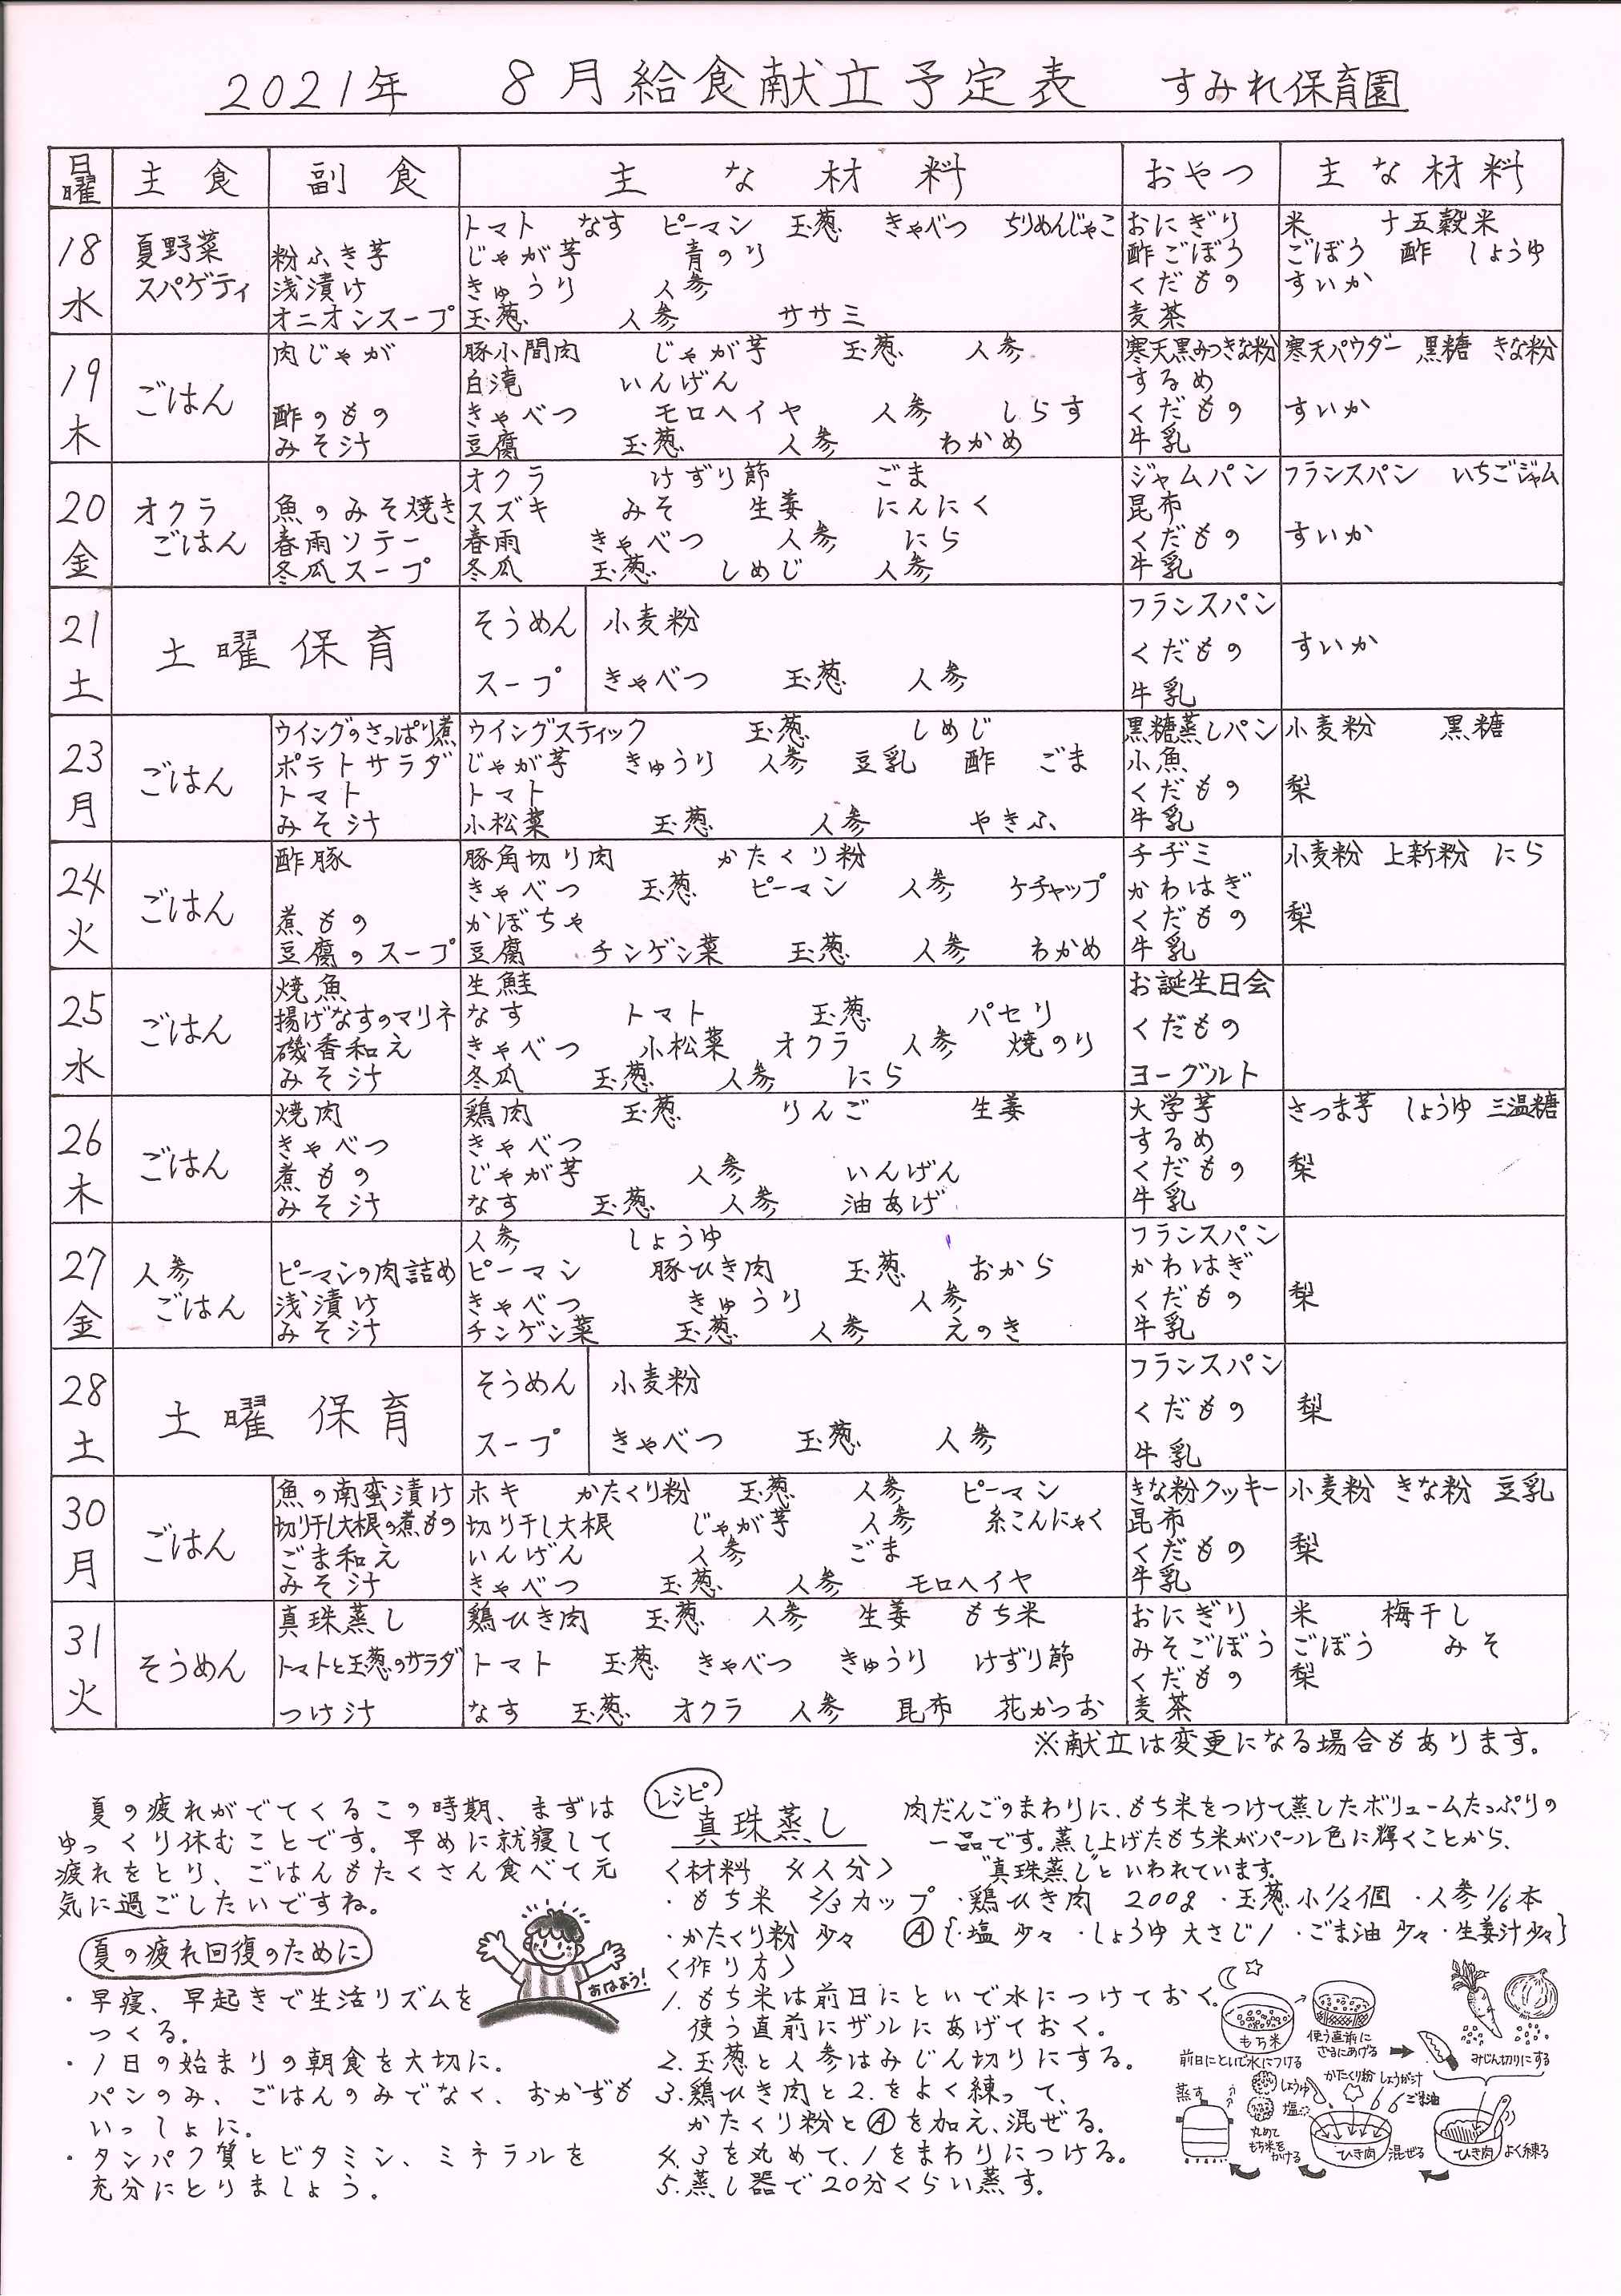 2021年 8月給食献立予定表 すみれ保育園
日曜 主食 副食 主な材料 おやつ 主な材料
18 水 夏野菜 スパゲティ
粉ふき芋
浅漬け
オニオンスープ
トマト なす ピーマン 玉葱 きゃべつ ちりめんじゃこ
じゃが芋 青のり
きゅうり 人参
玉葱 人参 ササミ
おにぎり 米 十五穀米
酢ごぼう ごぼう 酢 しょうゆ
くだもの すいか
麦茶
19 木 ごはん
肉じゃが 豚小間肉 じゃが芋 玉葱 人参
白滝 いんげん
酢のもの きゃべつ モロヘイヤ 人参 しらす
みそ汁 豆腐 玉葱 人参 わかめ
寒天黒みつきな粉 寒天パウダー 黒糖 きな粉
するめ
くだもの すいか
牛乳
20 金 オクラ ごはん
オクラ けずり節 ごま
魚のみそ焼き スズキ みそ 生姜 にんにく
春雨ソテー 春雨 きゃべつ 人参 にら
冬瓜スープ 冬瓜 玉葱 しめじ 人参
ジャムパン フランスパン いちごジャム
昆布
くだもの すいか
牛乳
21 土 土曜保育
そうめん 小麦粉
スープ きゃべつ 玉葱 人参
フランスパン
くだもの すいか
牛乳
23 月 ごはん
ウイングのさっぱり煮 ウイングスティック 玉葱 しめじ
ポテトサラダ じゃが芋 きゅうり 人参 豆乳 酢 ごま
トマト トマト
みそ汁 小松菜 玉葱 人参 やきふ
黒糖蒸しパン 小麦粉 黒糖
小魚
くだもの 梨
牛乳
24 火 ごはん
酢豚 豚角切り肉 かたくり粉
きゃべつ 玉葱 ピーマン 人参 ケチャップ
煮もの かぼちゃ
豆腐のスープ 豆腐 チンゲン菜 玉葱 人参 わかめ
チヂミ 小麦粉 上新粉 にら
かわはぎ
くだもの 梨
牛乳
25 水 ごはん
焼魚 生鮭
揚げなすのマリネ なす トマト 玉葱 パセリ
磯香和え きゃべつ 小松菜 オクラ 人参 焼のり
みそ汁 冬瓜 玉葱 人参 にら
お誕生日会
くだもの
ヨーグルト
26 木 ごはん
焼肉 鶏肉 玉葱 りんご 生姜
きゃべつ きゃべつ
煮もの じゃが芋 人参 いんげん
みそ汁 なす 玉葱 人参 油あげ
大学芋 さつま芋 しょうゆ 三温糖
するめ
くだもの 梨
牛乳
27 金 人参 ごはん
人参 しょうゆ
ピーマンの肉詰め ピーマン 豚ひき肉 玉葱 おから
浅漬け きゃべつ きゅうり 人参
みそ汁 チンゲン菜 玉葱 人参 えのき
フランスパン
かわはぎ
くだもの 梨
牛乳
28 土 土曜保育
そうめん 小麦粉
スープ きゃべつ 玉葱 人参
フランスパン
くだもの 梨
牛乳
30 月 ごはん
魚の南蛮漬け ホキ かたくり粉 玉葱 人参 ピーマン
切り干し大根の煮もの 切り干し大根 じゃが芋 人参 糸こんにゃく
ごま和え いんげん 人参 ごま
みそ汁 きゃべつ 玉葱 人参 モロヘイヤ
きな粉クッキー 小麦粉 きな粉 豆乳
昆布
くだもの 梨
牛乳
31 火 そうめん
真珠蒸し 鶏ひき肉 玉葱 人参 生姜 もち米
トマトと玉葱のサラダ トマト 玉葱 きゃべつ きゅうり けずり節
つけ汁 なす 玉葱 オクラ 人参 昆布 花かつお
おにぎり 米 梅干し
みそごぼう ごぼう みそ
くだもの 梨
麦茶
※献立は変更になる場合もあります。
夏の疲れがでてくるこの時期、まずは
ゆっくり休むことです。早めに就寝して
疲れをとり、ごはんもたくさん食べて元
気に過ごしたいですね。
夏の疲れ回復のために
おはよう!
・早寝、早起きで生活リズムを
つくる。
・1日の始まりの朝食を大切に。
パンのみ、ごはんのみでなく、おかずも
いっしょに。
・タンパク質とビタミン、ミネラルを
充分にとりましょう。
レシピ
真珠蒸し
肉だんごのまわりに、もち米をつけて蒸したボリュームたっぷりの
一品です。蒸し上げたもち米がパール色に輝くことから、
"真珠蒸し"といわれています。
<材料 4人分>
・もち米 2/3カップ ・鶏ひき肉 200g ・玉葱 小1/2個 ・人参 1/6本
・かたくり粉 少々 Ⓐ{・塩 少々 ・しょうゆ 大さじ1 ・ごま油 少々 ・生姜汁 少々}
<作り方>
1. もち米は前日にといで水につけておく。
使う直前にザルにあげておく。
2. 玉葱と人参はみじん切りにする。
3. 鶏ひき肉と2.をよく練って、
かたくり粉とⒶを加え、混ぜる。
4. 3を丸めて、1をまわりにつける。
5. 蒸し器で20分くらい蒸す。
もち米
前日にといで水につける
使う直前に
ざるにあげる
みじん切りにする
蒸す
しょうゆ
塩
かたくり粉
しょうが汁
ごま油
丸めて
もち米を
かける
ひき肉
混ぜる
ひき肉
よく練る